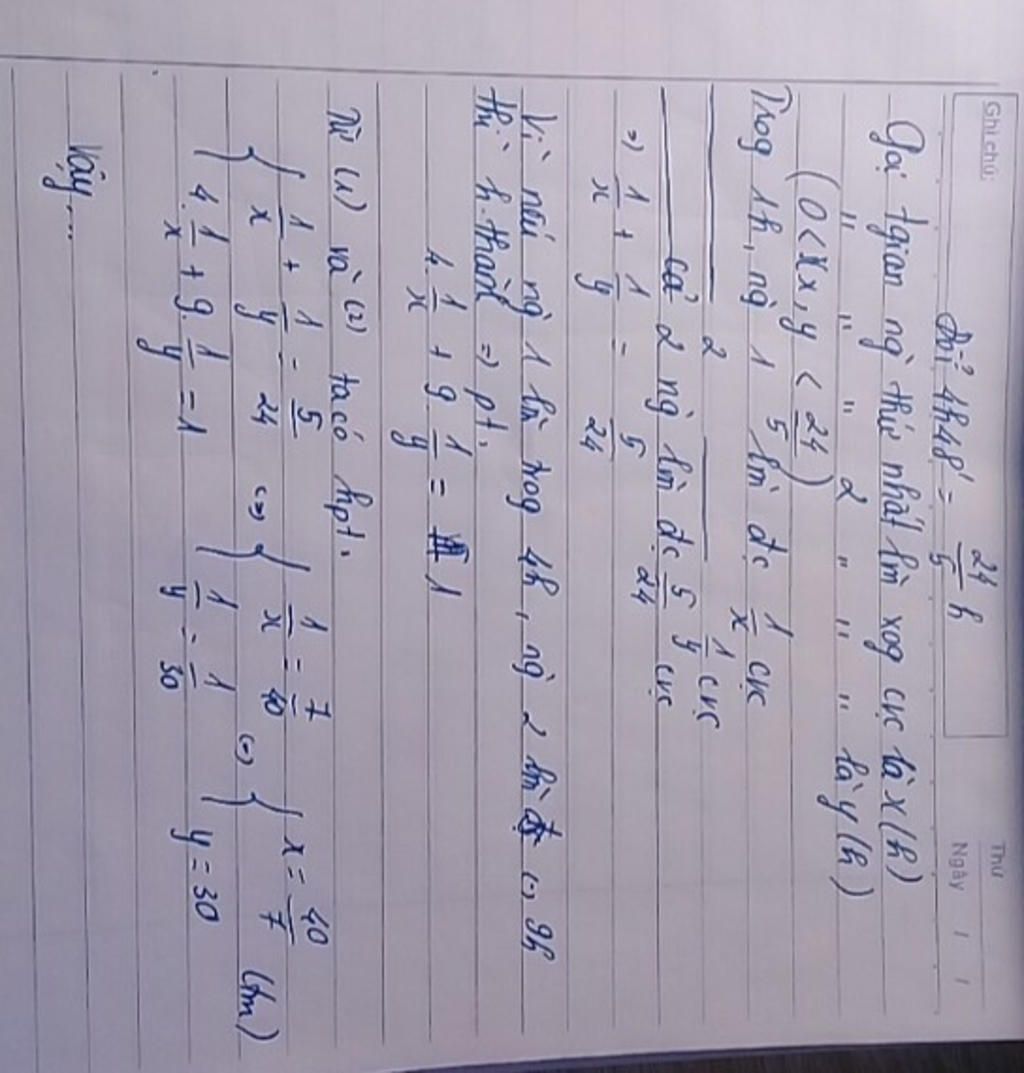 Ghi chú:
Thứ
Ngày / /
Đổi: 4h48' = 24/5 h
Gọi tgian ng` thứ nhất lm̀ xog cvc là x (h)
" " " 2 " " " là y (h)
(0 < x, y < 24/5)
Trog 1h, ng` 1 lm̀ đc 1/x cvc
2 1/y cvc
cả 2 ng` lm̀ đc 5/24 cvc
⇒ 1/x + 1/y = 5/24
Vì nếu ng` 1 lm̀ trog 4h, ng` 2 lm̀ 9h
thì h.thành ⇒ pt:
4. 1/x + 9. 1/y = 1
Từ (1) và (2) ta có hpt:
{ 1/x + 1/y = 5/24 ⇔ { 1/x = 7/40 ⇔ { x = 40/7 (tm)
4. 1/x + 9. 1/y = 1 1/y = 1/30 y = 30
Vậy....